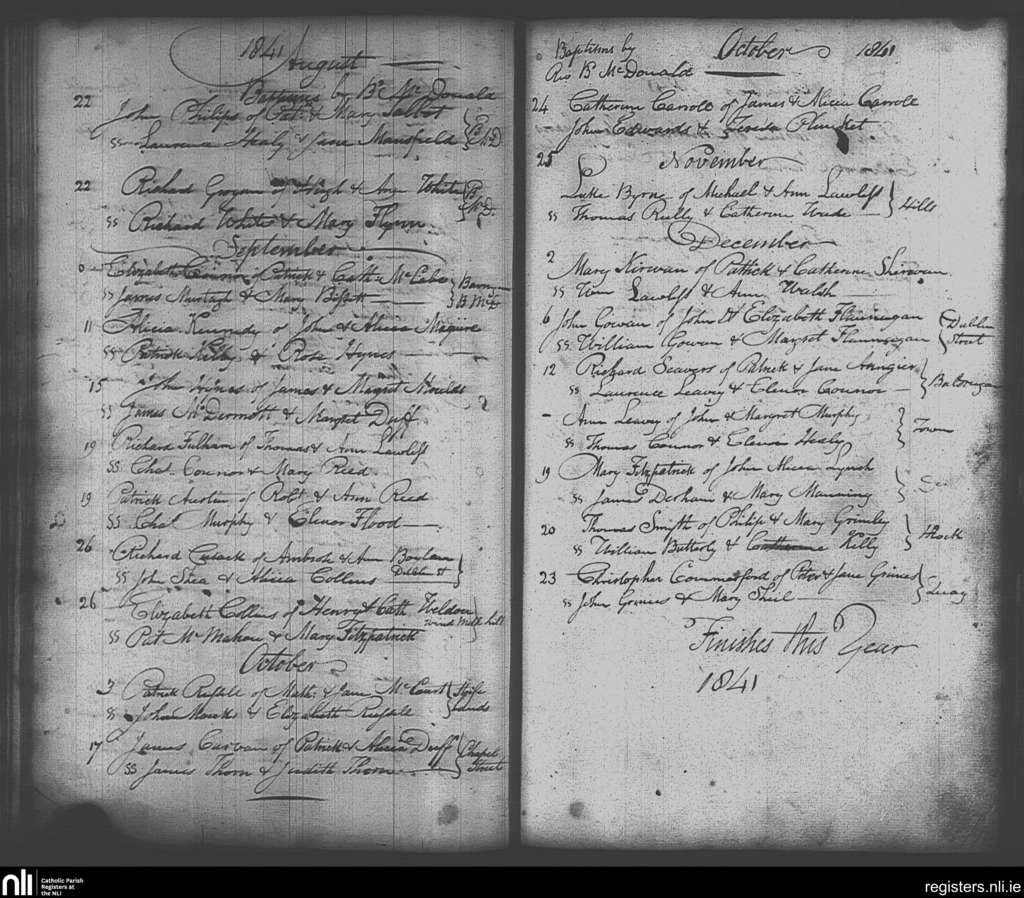 1841 August
Baptisms by Bd. McDonald
22 John Philips of Pat. & Mary Talbot
ss Laurence Healy & Jane Mansfield B McD
22 Richard Grogan of Hugh & Ann White B McD.
ss Richard White & Mary Flynn
September
Elizabeth Connor of Patrick & Cath. McCabe
ss James Murtagh & Mary B McD
11 Alicia Kennedy of John & Alicia Maguire
ss Patrick Kelly & Rose Hynes
15 John Hynes of James & Margret Moulds
ss James McDermott & Margret Duff
19 Richard Fulham of Thomas & Ann Lawless
ss Chas. Connor & Mary Reed
19 Patrick Austin of Robt. & Ann Reed
ss Chas. Murphy & Elenor Flood
26 Richard Cusack of Ambrose & Ann
ss John Shea & Alicia Collins Dublin St
26 Elizabeth Collins of Henry & Cath. Weldon
ss Pat McMahon & Mary Fitzpatrick Wind Mill hill
October
3 Patrick Russell of Math. & Jane McCourt
ss John Monks & Elizabeth Russell
17 James Carvan of Patrick & Alicia Duff Chapel
ss James Thorn & Judith Thorn Street
Baptisms by October 1841
Rev B. McDonald
24 Catherine Carroll of James & Alicia Carroll
John Edwards & Teresa Plunket
25 November
Luke Byrne of Michael & Ann Lawless
ss Thomas Reilly & Catherine Wade Hills
December
2 Mary Kirwan of Patrick & Catherine Shirwan
ss Wm Lawless & Ann Walsh
6 John Gowan of John & Elizabeth Flannegan Dublin
ss William Gowan & Margret Flannegan Street
12 Richard Seavers of Patrick & Jane
ss Laurence Leavy & Elenor Connor
- Ann Leavy of John & Margret Murphy
ss Thomas Connor & Elenor Healy Town
19 Mary Fitzpatrick of John Alicia Lynch
ss James Derham & Mary Manning
20 Thomas Smyth of Philip & Mary Grimley
ss William Butterly & Catherine Kelly
23 Christopher Commesford of Peter & Jane Grimes
ss John Grimes & Mary Sheil Quay
Finishes this Year
1841
nli Catholic Parish
Registers at
the NLI
registers.nli.ie